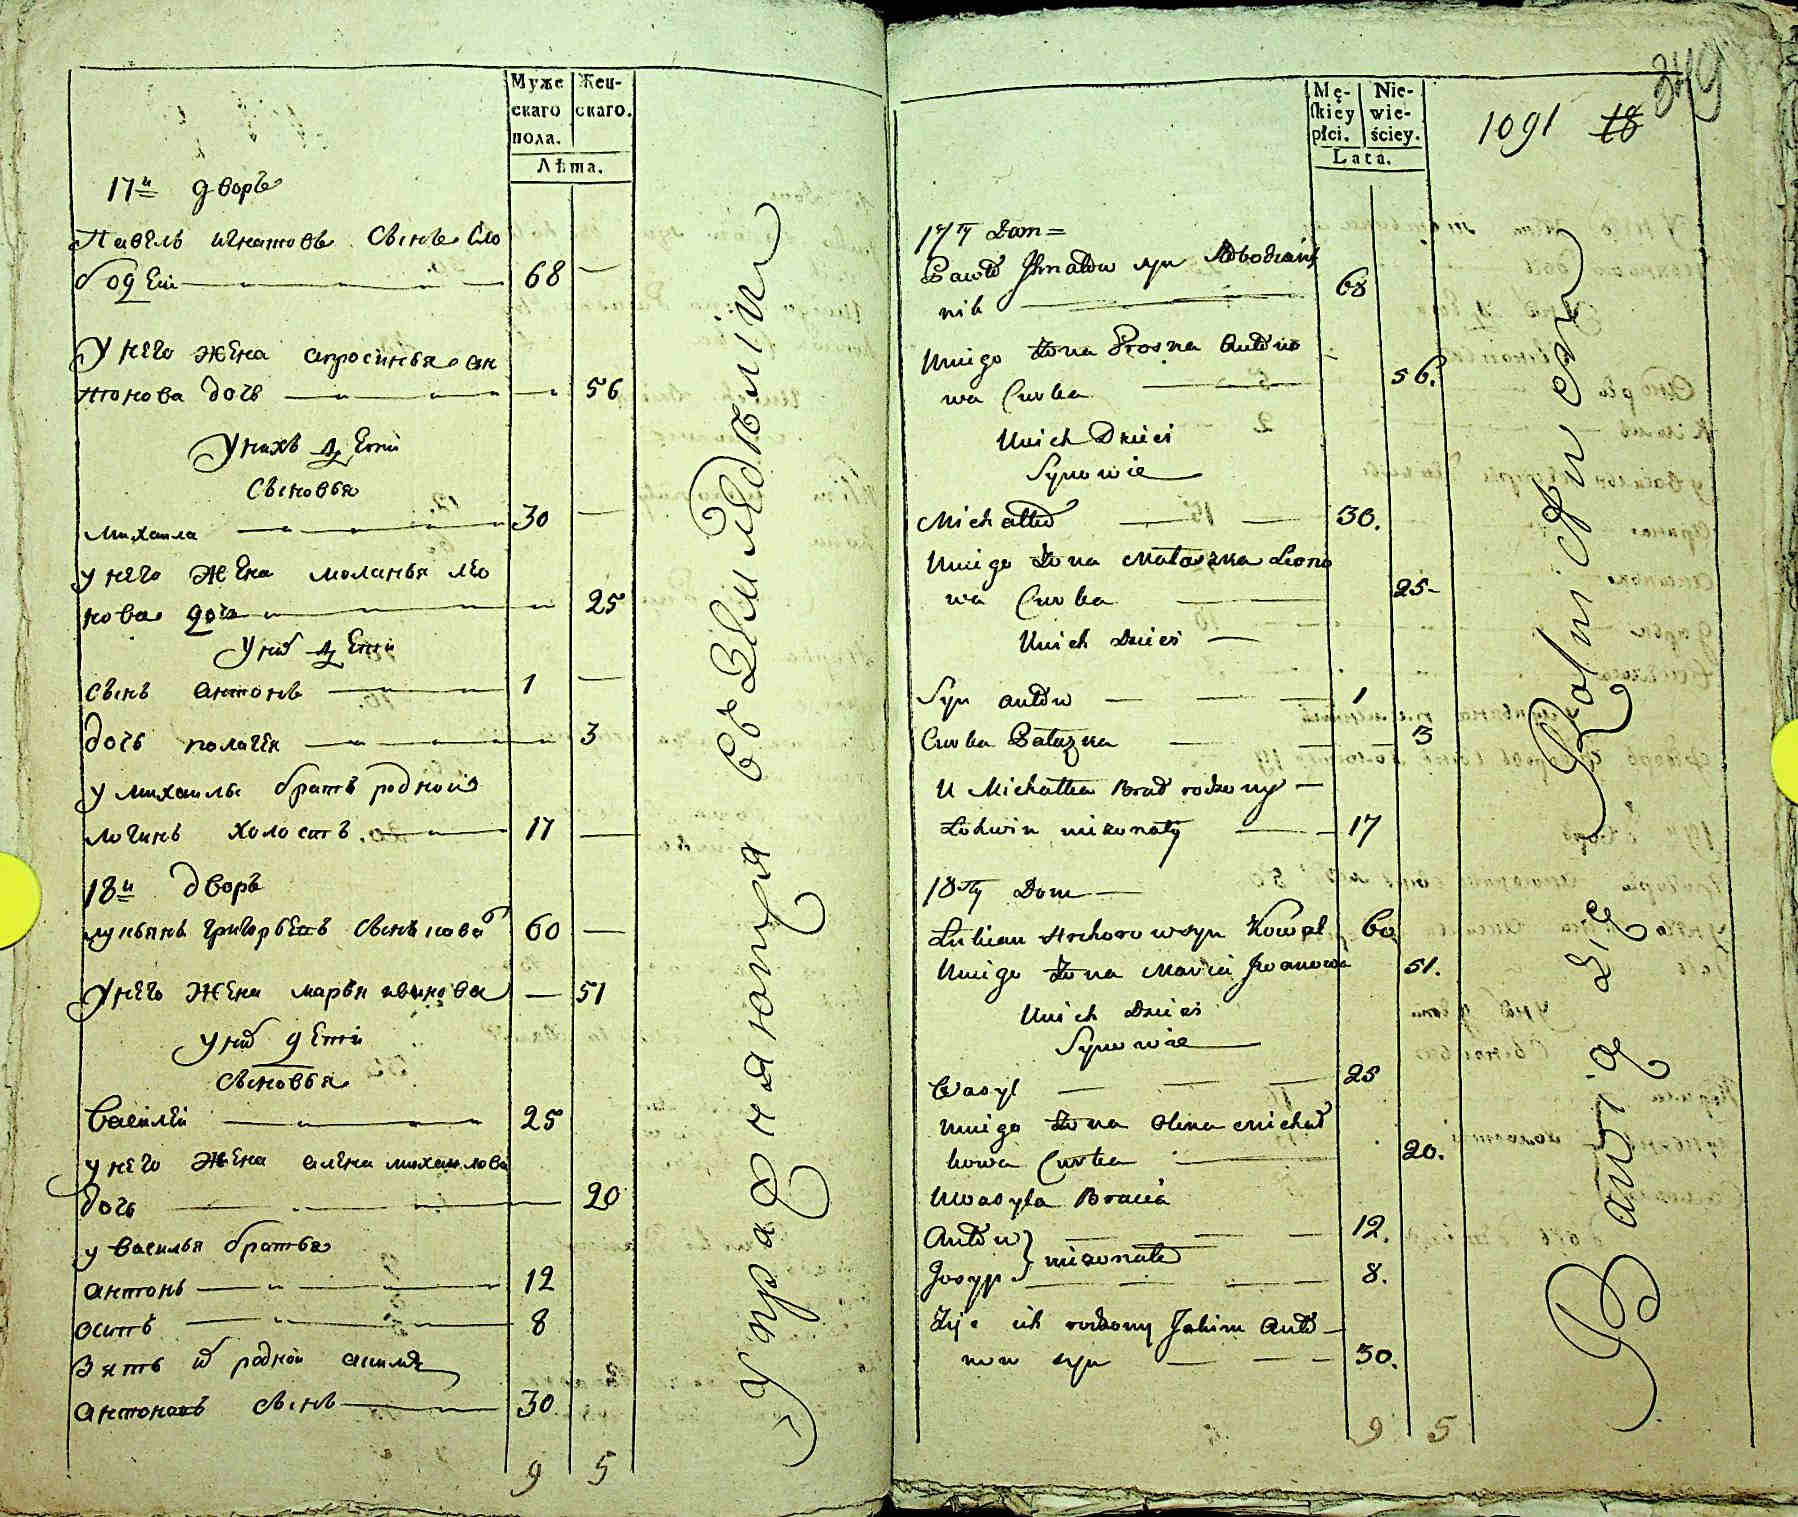 Муже
скаго
пола.
Жен-
скаго.
Лѣта.
17й дворъ
Павелъ игнатовъ сынъ Сло
бодени 68 —
У него жена апросинья ан
тонова дочь — 56
Унихъ дети
Сыновья
михаила 30 —
у него жена маланья лео
нова дочь 25
Унихъ дети
сынъ антонъ 1 —
дочь палагея 3
у михаилы братъ родной
логинъ холостъ 17 —
18й дворъ
лукьянъ григорьевъ сынъ 60 —
Унего жена марья иванова — 51
унихъ дети
Сыновья
Василей 25
у него жена алена михаилова
дочь 20
у василья братья
антонъ 12
осипъ 8
Зять родной
антоновъ сынъ 30
9 5
Упражняются въ Земледелiи
Mę-
skiey
płci.
Nie-
wie-
ściey.
Lata.
1091 18
349
17ty Dom =
Paweł Ihnatow syn Słobodziań
nik 68
Uniego Żona Prosna Antono
wa Curka 56.
Unich Dzieci
Synowie
Michałko 30.
Uniego Żona Małaszka Leono
wa Curka 25-
Unich Dzieci
Syn anton 1
Curka Pałazka 3
U Michałka Brad rodzony
Łohwin nieżonaty 17
18ty Dom
Łukian Hrehorow syn Kowal 60
Uniego Żona Maria Iwanowa 51.
Unich Dzieci
Synowie
Wasyl 25
Uniego Żona Olena Michał
kowa Curka 20.
Uwasyla Bracia
Anton 12.
Josyp } nieżonate 8.
Zięć ich rodzony Jakim Anto
now syn 30.
9 5
Bawią się Rolnictwem